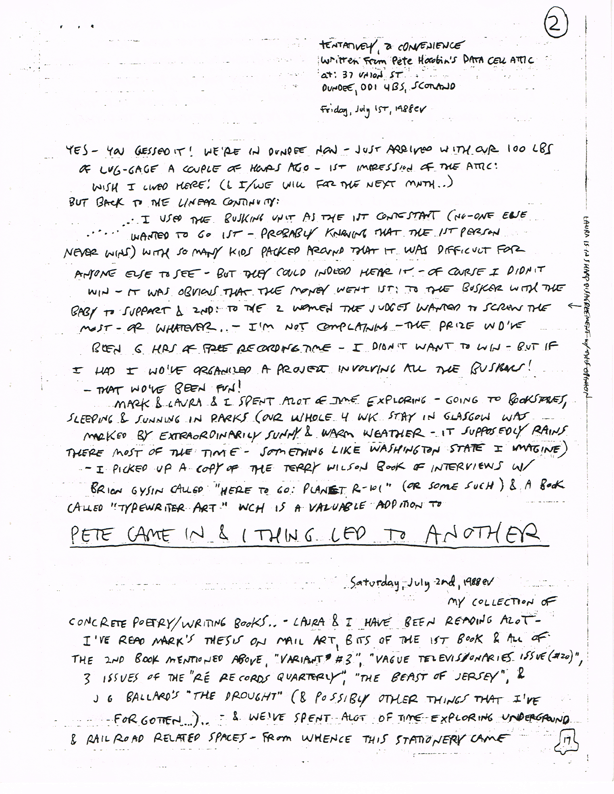 2
TENTATIVELY, A CONVENIENCE
Written From Pete Horobin's DATA CELL ATTIC
at: 37 UNION ST
DUNDEE, DD1 4BS, SCOTLAND
Friday, July 1st, 1988ev
YES - YOU GESSED IT! WE'RE IN DUNDEE NOW - JUST ARRIVED WITH OUR 100 LBS
OF LUG-GAGE A COUPLE OF HOURS AGO - 1ST IMPRESSION OF THE ATTIC:
WISH I LIVED HERE! (& I/WE WILL FOR THE NEXT MNTH..)
BUT BACK TO THE LINEAR CONTINUITY:
I USED THE BUSKING UNIT AS THE 1ST CONTESTANT (NO-ONE ELSE
WANTED TO GO 1ST - PROBABLY KNOWING THAT THE 1ST PERSON
NEVER WINS) WITH SO MANY KIDS PACKED AROUND THAT IT WAS DIFFICULT FOR
ANYONE ELSE TO SEE - BUT THEY COULD INDEED HEAR IT - OF COURSE I DIDN'T
WIN - IT WAS OBVIOUS THAT THE MONEY WENT 1ST: TO THE BUSKER WITH THE
BABY TO SUPPORT & 2ND: TO THE 2 WOMEN THE JUDGES WANTED TO SCREW THE
MOST - OR WHATEVER... - I'M NOT COMPLAINING - THE PRIZE WD'VE
BEEN 6 HRS OF FREE RECORDING TIME - I DIDN'T WANT TO WIN - BUT IF
I HAD I WD'VE ORGANIZED A PROJECT INVOLVING ALL THE BUSKERS!
- THAT WD'VE BEEN FUN!
MARK & LAURA & I SPENT ALOT OF TIME EXPLORING - GOING TO BOOKSTORES,
SLEEPING & SUNNING IN PARKS (OUR WHOLE 4 WK STAY IN GLASGOW WAS
MARKED BY EXTRAORDINARILY SUNNY & WARM WEATHER - IT SUPPOSEDLY RAINS
THERE MOST OF THE TIME - SOMETHING LIKE WASHINGTON STATE I IMAGINE)
- I PICKED UP A COPY OF THE TERRY WILSON BOOK OF INTERVIEWS W/
BRION GYSIN CALLED "HERE TO GO: PLANET R-101" (OR SOME SUCH) & A BOOK
CALLED "TYPEWRITER ART" WCH IS A VALUABLE ADDITION TO
PETE CAME IN & 1 THING LED TO ANOTHER
Saturday, July 2nd, 1988ev
MY COLLECTION OF
CONCRETE POETRY/WRITING BOOKS.. - LAURA & I HAVE BEEN READING ALOT -
I'VE READ MARK'S THESIS ON MAIL ART, BITS OF THE 1ST BOOK & ALL OF
THE 2ND BOOK MENTIONED ABOVE, "VARIANT #3", "VAGUE TELEVISIONARIES ISSUE (#20)",
3 ISSUES OF THE "RÉ RECORDS QUARTERLY", "THE BEAST OF JERSEY", &
J G BALLARD'S "THE DROUGHT" (& POSSIBLY OTHER THINGS THAT I'VE
FORGOTTEN...).. - & WE'VE SPENT ALOT OF TIME EXPLORING UNDERGROUND
& RAILROAD RELATED SPACES - FROM WHENCE THIS STATIONERY CAME
17
LAURA IS IN SHARP DISAGREEMENT W/ THIS OPINION